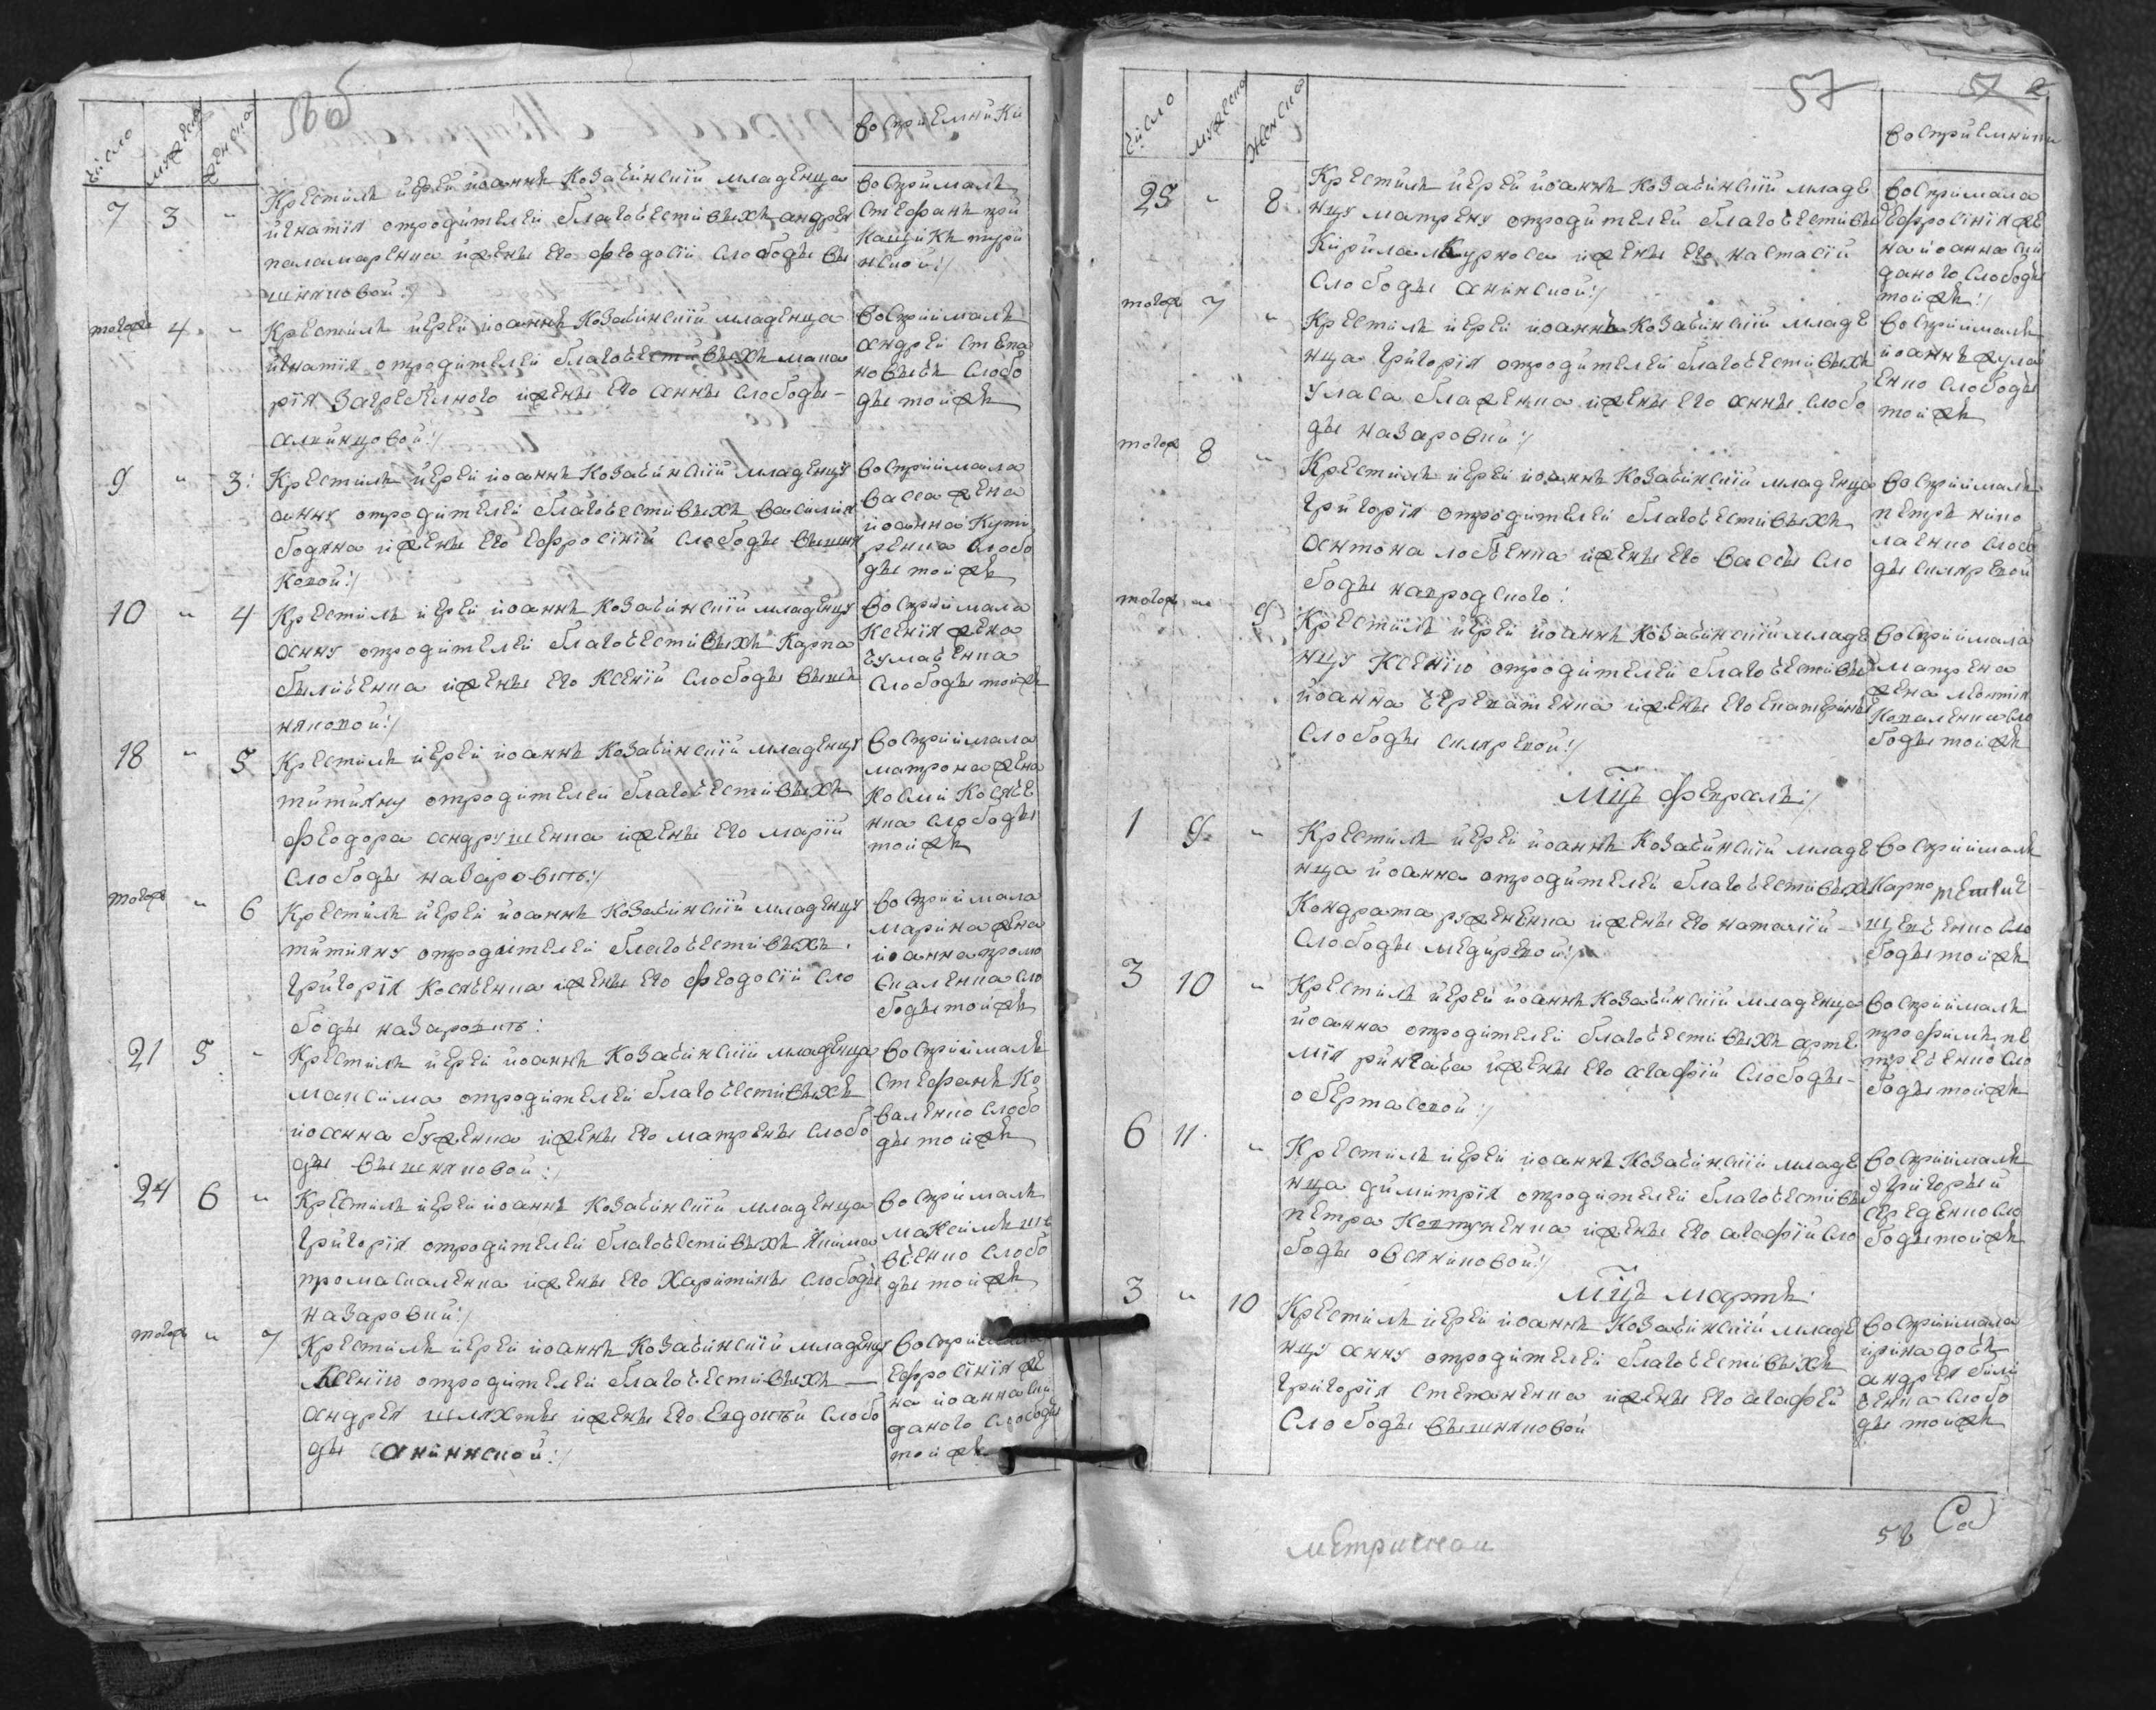 56об
число мужеска женска воспрiемники
7 3 "
Крестилъ иерей иоаннъ Козачинскiй младенца
игнатiя отродителей благочестивыхъ андрея
паламаренка ижены его феодосiи слободы вы
шняковой:/
воспримале
стефанъ при
нской:/
тогоже 4 "
Крестилъ иерей иоаннъ Козачинскiй младенца
игнатiя отродителей благочестивыхъ мака
рiя загребелного ижены его анны слободы
алкинцовой:/
восприималъ
андрей степа
новычъ слобо
ды тойже
9 " 3
Крестилъ иерей иоаннъ Козачинскiй младенцу
анну отродителей благочестивыхъ василия
бодяна ижены его ефросiнiи слободы вышня
ковой:/
восприимала
васса жена
иоанна Кути
ренка слобо
ды тойже
10 " 4
Крестилъ иерей иоаннъ Козачинскiй младенцу
анну отродителей благочестивыхъ Карпа
быличенка ижены его Ксенiи слободы выш
няковой:/
восприимала
Ксенiя жена
чумаченка
слободы тойже
18 " 5
Крестилъ иерей иоаннъ Козачинскiй младенцу
титияну отродителей благочестивыхъ
феодора андрушенка ижены его марiи
слободы назаровить:/
восприимала
матрона жена
космы Косяче
нка слободы
тойже
тогоже " 6
Крестилъ иерей иоаннъ Козачинскiй младенцу
титияну отродителей благочестивыхъ
григорiя Косяченка ижены его феодосiи сло
боды назаровить:
восприимала
марина жена
иоанна промо
скаленка сло
боды тойже
21 5 "
Крестилъ иерей иоаннъ Козачинскiй младенца
максима отродителей благочестивыхъ
иоанна буженка ижены его матрены слобо
ды вышняковой:/
восприималъ
стефанъ Ко
валенко слобо
ды тойже
24 6 "
Крестилъ иерей иоаннъ Козачинскiй младенца
григорiя отродителей благочестивыхъ якима
промаскаленка ижены его харитины слободы
назаровки:/
восприималъ
максимъ ше
вченко слобо
ды тойже
тогоже " 7
Крестилъ иерей иоаннъ Козачинскiй младенцу
Ксенiю отродителей благочестивыхъ
андрея шляхты ижены его евдокiи слобо
ды анинской:/
ефросiнiя же
на иоанна ски
даного слободы
тойже
57 57 2
число мужеска женска воспрiемники
25 " 8
Крестилъ иерей иоаннъ Козачинскiй младе
нцу матрену отродителей благочестивы
Кирила Курноса ижены его настасiи
слободы анинской:/
восприимала
ефросiнiя же
на иоанна ски
даного слободы
тойже:/
тогоже 7 "
Крестилъ иерей иоаннъ Козачинскiй младе
нца григорiя отродителей благочестивыхъ
уласа блаженка ижены его анны слобо
ды назаровки:/
восприималъ
иоаннъ жула
енко слободы
тойже
тогоже 8 "
Крестилъ иерей иоаннъ Козачинскiй младенца
григорiя отродителей благочестивыхъ
антона лобченка ижены его вассы сло
боды
восприималъ
петръ нико
лаенко слобо
ды скляревой
тогоже " 9
Крестилъ иерей иоаннъ Козачинскiй младе
нцу Ксенiю отродителей благочестивы
иоанна череватенка ижены его екатерины
слободы скляревой:/
восприимала
матрена
жена леонтия
Коваленка сло
боды тойже
Мцъ февралъ:/
1 9 "
Крестилъ иерей иоаннъ Козачинскiй младе
нца иоанна отродителей благочестивыхъ
Кондрата руженка ижены его наталiи
слободы медиревой:/
восприималъ
Карпо
сло
боды тойже
3 10 "
Крестилъ иерей иоаннъ Козачинскiй младенца
иоанна отродителей благочестивыхъ арте
мiя рингача ижены его агафiи слободы
обертасовой:/
восприималъ
трофимъ пе
треченко сло
боды тойже
6 11 "
Крестилъ иерей иоаннъ Козачинскiй младе
нца димитрiя отродителей благочестивы
петра Ковтуненка ижены его агафiи сло
боды овсяниковой:/
восприималъ
григорый
середенко сло
боды тойже
Мцъ мартъ:
3 " 10
Крестилъ иерей иоаннъ Козачинскiй младе
нцу анну отродителей благочестивыхъ
григорiя степаненка ижены его агафiи
слободы вышняковой
восприимала
ирина дочъ
андрея били
ченка слобо
ды тойже
метрическая
58